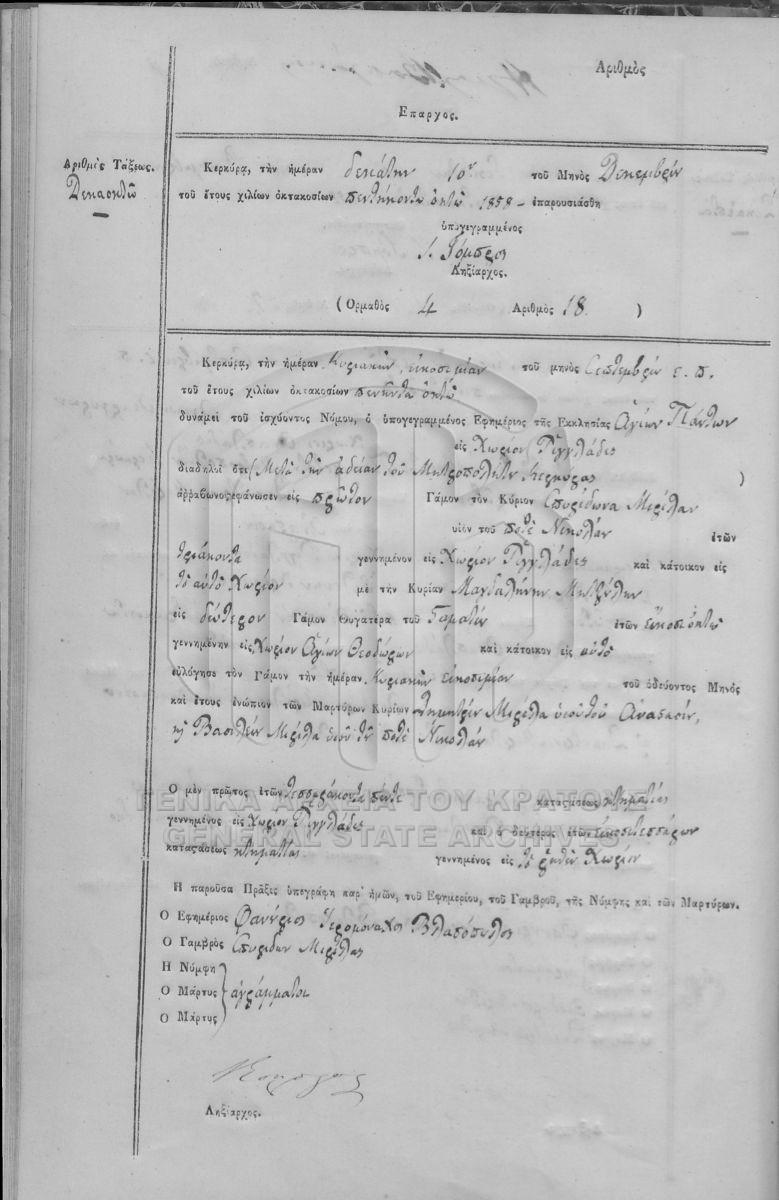 Αριθμὸς
Επαρχος.
Αριθμὸς Τάξεως.
Δεκαοκτὼ
Κερκύρᾳ, τὴν ἡμέραν δεκάτην 10ην τοῦ Μηνὸς Δεκεμβρίου
τοῦ ἔτους χιλίων ὀκτακοσίων πεντήκοντα ὀκτὼ 1858 - ἐπαρουσιάσθη
ὑπογεγραμμένος
Ληξίαρχος.
(Ορμαθὸς 4 Αριθμὸς 18 )
Κερκύρᾳ, τὴν ἡμέραν Κυριακὴν, εἰκοσιμίαν τοῦ μηνὸς Σεπτεμβρίου ε. π.
τοῦ ἔτους χιλίων ὀκτακοσίων πενῆντα ὀκτὼ
δυνάμει τοῦ ἰσχύοντος Νόμου, ὁ ὑπογεγραμμένος Εφημέριος τῆς Εκκλησίας Ἁγίων Πάντων
εἰς Χωρίον Ριγγλάδες
διαδηλοῖ ὅτι (Μετὰ τὴν ἀδείαν τοῦ Μητροπολίτου Κερκύρας )
ἀῤῥαβωνοςεφάνωσεν εἰς πρῶτον Γάμον τὸν Κύριον Σπυρίδωνα Μιρίλαν
υἱὸν τοῦ ποτὲ Νικολάου ἐτῶν
τριάκοντα γεννημένον εἰς Χωρίον Ριγγλάδες καὶ κάτοικον εἰς
τὸ αὐτὸ Χωρίον μὲ τὴν Κυρίαν Μαγδαλήνην
εἰς δεύτερον Γάμον Θυγατέρα τοῦ Σταματίου ἐτῶν εἴκοσι ὀκτὼ
γεννημένην εἰς Χωρίον Ἁγίων Θεοδώρων καὶ κάτοικον εἰς αὐτὸ
εὐλόγησε τὸν Γάμον τὴν ἡμέραν Κυριακὴν εἰκοσιμίαν τοῦ ὁδεύοντος Μηνὸς
καὶ ἔτους ἐνώπιον τῶν Μαρτύρων Κυρίων Δημητρίου Μιρίλα υἱοῦ τοῦ Ἀναστασίου,
κὴ Βασιλείου Μιρίλα υἱοῦ τοῦ ποτὲ Νικολάου
Ο μὲν πρῶτος ἐτῶν τεσσαράκοντα πέντε καταςάσεως κτηματίας
γεννημένος εἰς Χωρίον Ριγγλάδες καὶ ὁ δεύτερος ἐτῶν εἰκοσιτεσσάρων
καταςάσεως κτηματίας γεννημένος εἰς τὸ ῥηθὲν Χωρίον
Η παροῦσα Πρᾶξις ὑπεγράφη παρ' ἡμῶν, τοῦ Εφημερίου, τοῦ Γαμβροῦ, τῆς Νύμφης καὶ τῶν Μαρτύρων.
Ο Εφημέριος Ἱερομόναχος Βλαπόπουλος
Ο Γαμβρὸς Σπυρίδων Μιρίλας
Η Νύμφη
Ο Μάρτυς ἀγράμματοι
Ο Μάρτυς
Ληξίαρχος.
ΓΕΝΙΚΑ ΑΡΧΕΙΑ ΤΟΥ ΚΡΑΤΟΥΣ
GENERAL STATE ARCHIVES